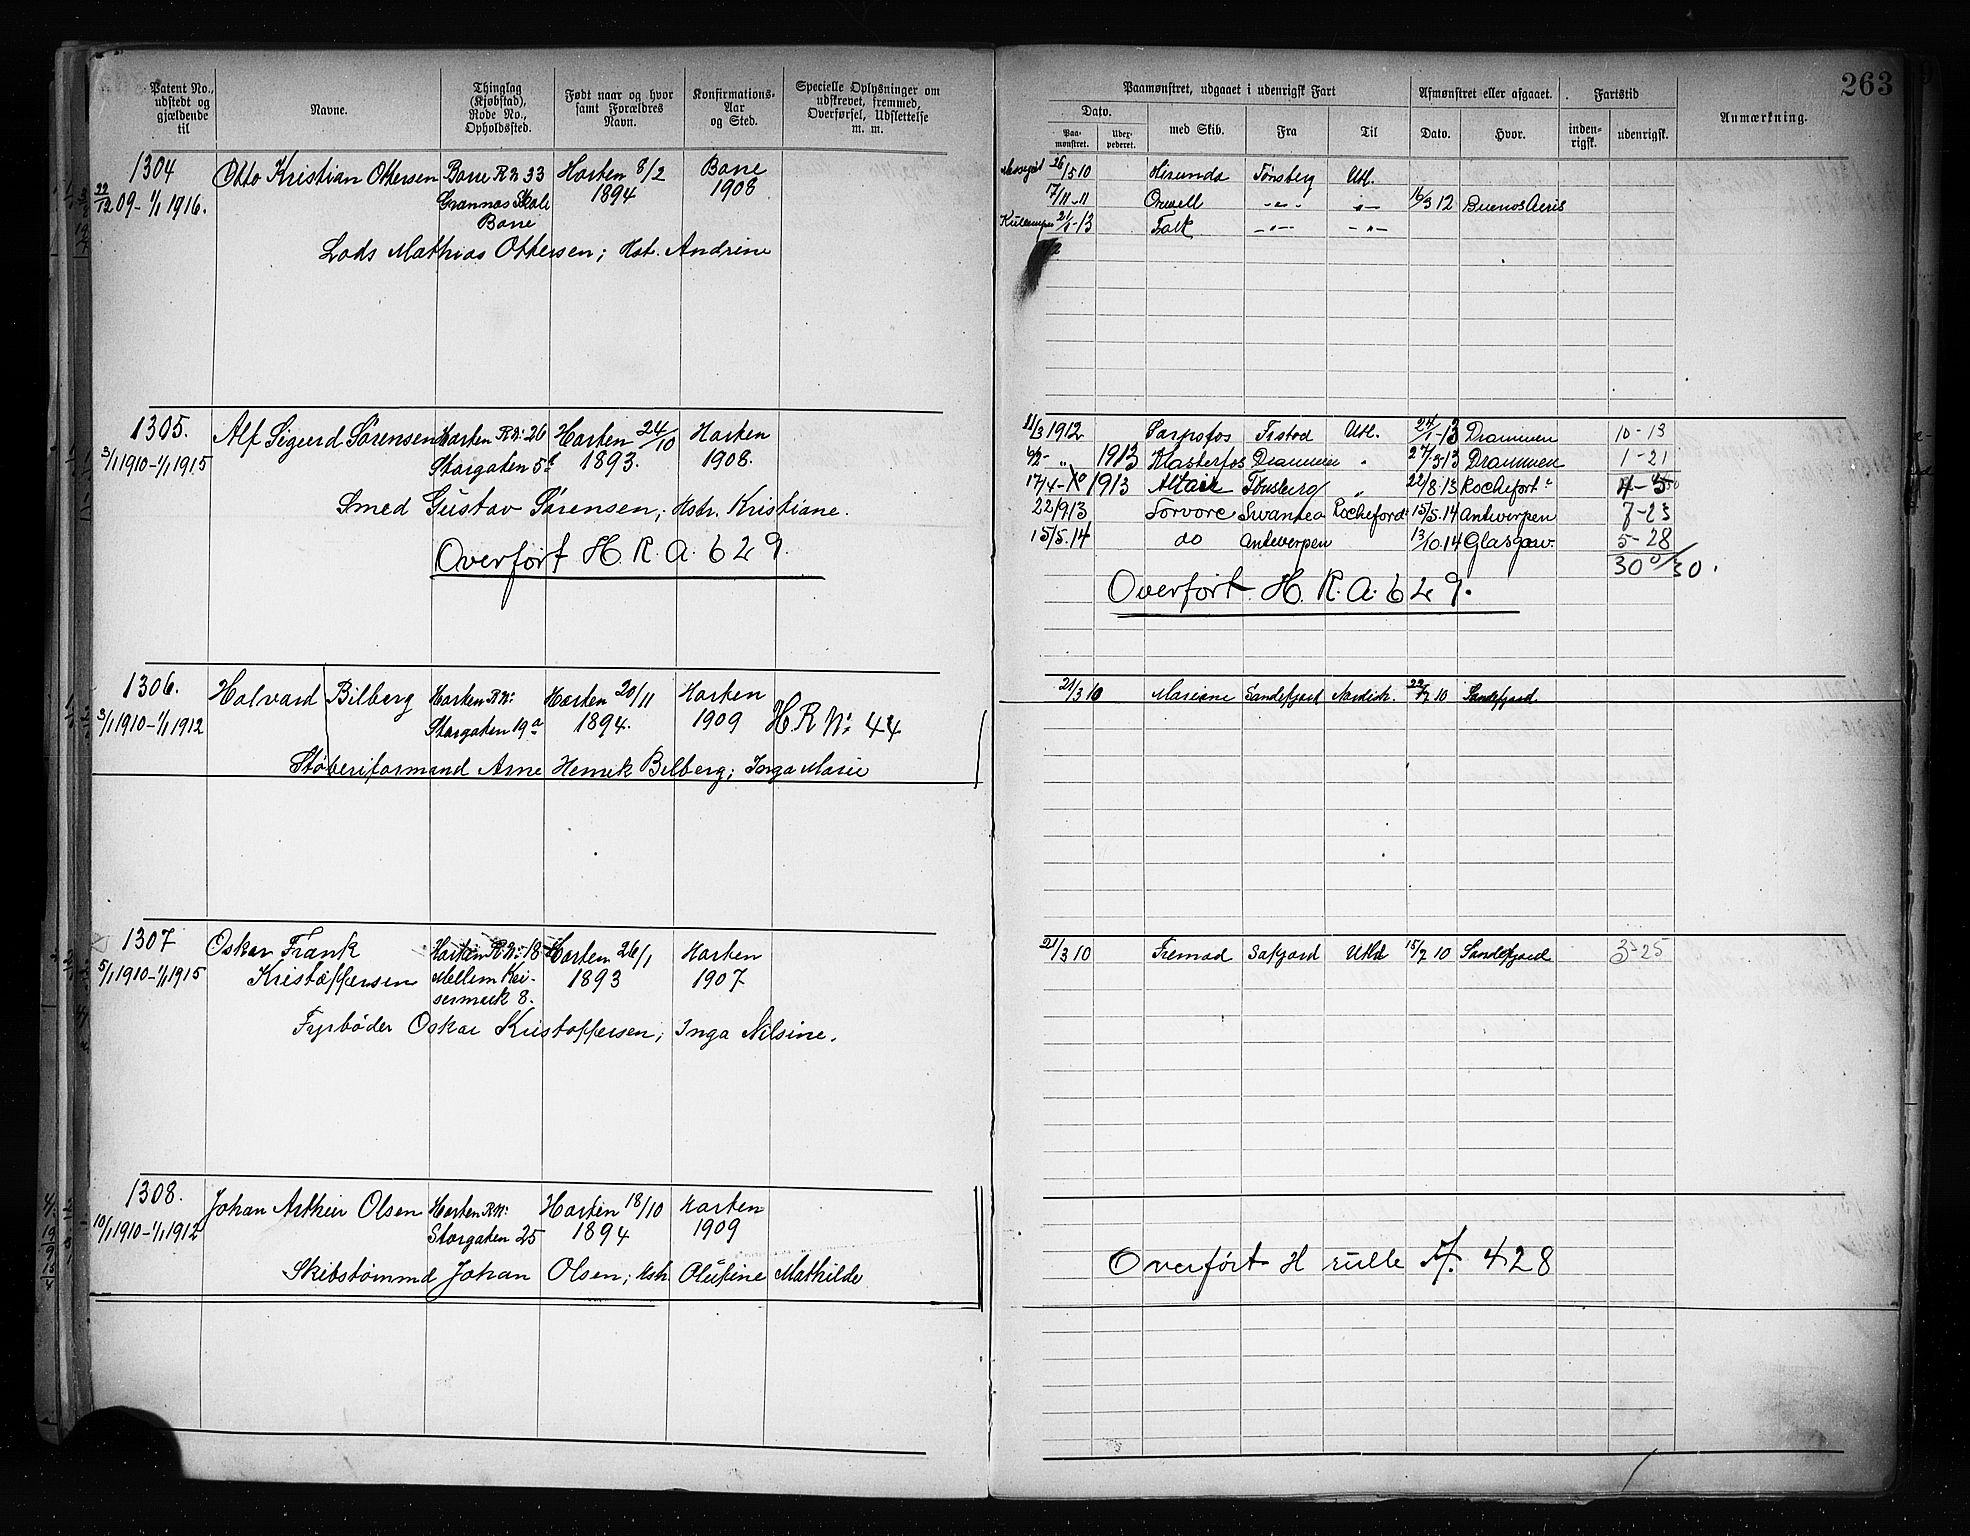 263
Patent No., udstedt og gjældende til
Navne.
Thinglag (Kjøbstad), Rode No., Opholdssted.
Født naar og hvor samt Forældres Navn.
Konfirmations-Aar og Sted.
Specielle Oplysninger om udskrevet, fremmed, Overførsel, Udslettelse m. m.
Paamønstret, udgaaet i udenrigsk Fart
Afmønstret eller afgaaet.
Fartstid
Anmærkning.
Dato.
Paa-mønstret.
Udex-pederet.
med Skib.
Fra
Til
Dato.
Hvor.
inden-rigsk.
udenrigsk.
1304
22/12 09 - 1/1 1916.
Otto Kristian Ottersen
Borre R No 33
Grannæs Skole
Borre
Horten 8/2
1894
Borre
1908
Lods Mathias Ottersen; Hst. Andrine
26/5 10 Hirundo Tønsberg Utl.
17/11 - 11 Orwell -"- -"- 16/3 12 Buenos Aeris
21/1 - 13 Falk -"- -"-
1305.
3/1 1910 - 1/1 1915
Alf Sigurd Sørensen
Horten R No: 26
Storgaten 5
Horten 24/10
1893.
Horten
1908.
Smed Gustav Sørensen; Hstr. Kristiane.
Overført H. R. A. 629.
11/3 1912 Sarpsfos Frstad Utl. 24/1 - 13 Drammen 10 - 13
6/2 - " 1913 Klosterfos Drammen " 27/3 13 Drammen 1 - 21
17/4 - 1913 Altair Tønsberg " 22/8 13 Rochefort 4 - 5
22/9 13 Torvore Swantea Rocheford 15/5. 14 Antwerpen 7 - 23
15/5. 14 do Antwerpen 13/10. 14 Glasgow. 5 - 28
30 0/30.
Overført H. R. A. 629.
1306.
3/1 1910 - 1/1 1912
Halvard Bilberg
Horten R No:
Storgaten 19 a
Horten 20/11
1894.
Horten
1909
H. R No: 44
Støberiformand Arne Henrik Bilberg; Inga Marie
21/3 10 Mariane Sandefjord Nordish. 22/7 10 Sandefjord
1307
5/1 1910 - 1/1 1915
Oskar Frank
Kristoffersen
Horten R No: 18
Mellem Kei-
sermerk 8.
Horten 26/1
1893
Horten
1907
Fyrbøder Oskar Kristoffersen; Inga Nilsine.
21/3 10 Fremad Safjord Utld 15/7 10 Sandefjord 3 - 25
1308.
10/1 1910 - 1/1 1912
Johan Arthur Olsen
Horten R No:
Storgaten 25
Horten 18/10
1894
Horten
1909
Skibstømmd Johan Olsen; Hstr. Olufine Mathilde
Overført H rulle A. 428